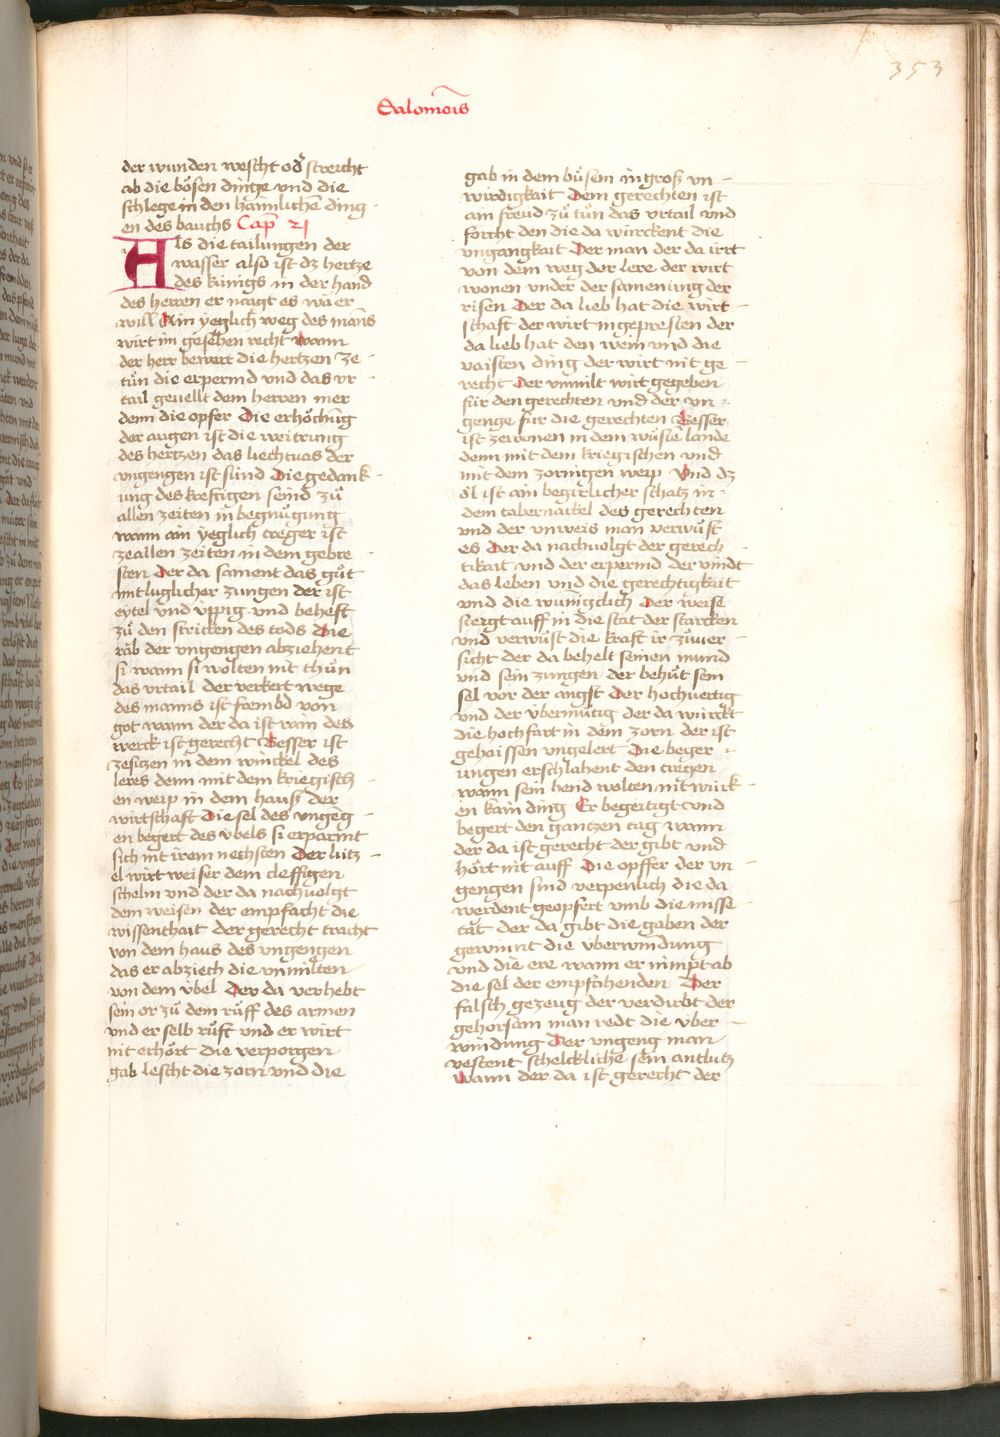 353
Salomōis
der wunden wescht od̕ streicht
ab die bösen dinge vnd die
schlege in den haimlichen ding
en des bauchs Cap̄ 21
Als die tailungen der
wasser also ist dz hertze
des künigs in der hand
des herren er naigt es wa er
will Ain yeglich weg des mans
wirt im gesehen recht wann
der herr bewert die hertzen ze
tůn die erpermd vnd das vr
tail geuellt dem herren mer
denn die opfer Die erhöchūg
der augen ist die weitrung
des hertzen das liechtvas der
vngengen ist sünd Die gedank
ung des kreftigen seind zů
allen zeiten in begnůgung
wann ain yeglich treger ist
zeallen zeiten in dem gebre
sten Der da sament das gůt
mit luglicher zungen der ist
eytel vnd üppig vnd beheft
zů den stricken des tods Die
räb der vngengen abziehent
si wann si wolten nit thůn
das vrtail der verkert wege
des manns ist frembd von
got wann der da ist rain des
werck ist gerecht Besser ist
zesitzen in dem winckel des
leres denn mit dem kriegisch
en weip in dem hauß der
wirtschaft Die sel des vngēg
en begert des übels si erparmt
sich nit irem nechsten Der lütz
el wirt weiser dem cleffigen
schelm vnd der da nachuolgt
dem weisen der empfacht die
wissenthait der gerecht tracht
von dem haus des vngengen
das er abziech die vnmilten
von dem übel Der da verhebt
sein or zů dem růff des armen
vnd er selb růft vnd er wirt
nit erhört die verporgen
gab lescht die zorn vnd die
gab in dem bůsem in groß vn
wirdigkait Dem gerechten ist
ain freud zů tůn das vrtail vnd
forcht den die da würckent die
vngangkait Der man der da irrt
von dem weg der lere der wirt
wonen vnder der samenung der
risen Der da lieb hat die wirt
schaft der wirt in gepresten der
da lieb hat den wein vnd die
vaisten ding der wirt nit ge
recht Der vnmilt wirt gegeben
für den gerechten vnd der vn
genge für die gerechten Besser
ist zewonen in dem wůstē lande
denn mit dem kriegischen vnd
mit dem zornigen weip Vnd dz
öl ist ain begirlicher schatz in
dem tabernackel des gerechten
vnd der vnweis man verwůst
es Der da nachuolgt der gerech
tikait vnd der erpermd der vindt
das leben vnd die gerechtigkait
vnd die wunigclich Der weise
steigt auff in die stat der starcken
vnd verwůst die kraft ir zůuer
sicht der da behelt seinen mund
vnd sein zungen der behůt sein
sel vor der angst Der hochuertig
vnd der übermůtig der da würckt
die hochfart in dem zorn der ist
gehaissen vngelert Die beger
ungen erschlahent den tregen
wann sein hend wolten nit würk
en kain ding Er begeitigt vnd
begert den gantzen tag wann
der da ist gerecht der gibt vnd
hört nit auff Die opffer der vn
gengen sind verpenlich die da
werdent geopfert vmb die misse
tät der da gibt die gaben der
gewinnt die überwindung
vnd die ere wann er nimpt ab
die sel der empfahenden Der
falsch gezeug der verdirbt der
gehorsam man redt die über
windung Der vngeng man
vestent schelcklichē sein antlutz
wann der da ist gerecht der